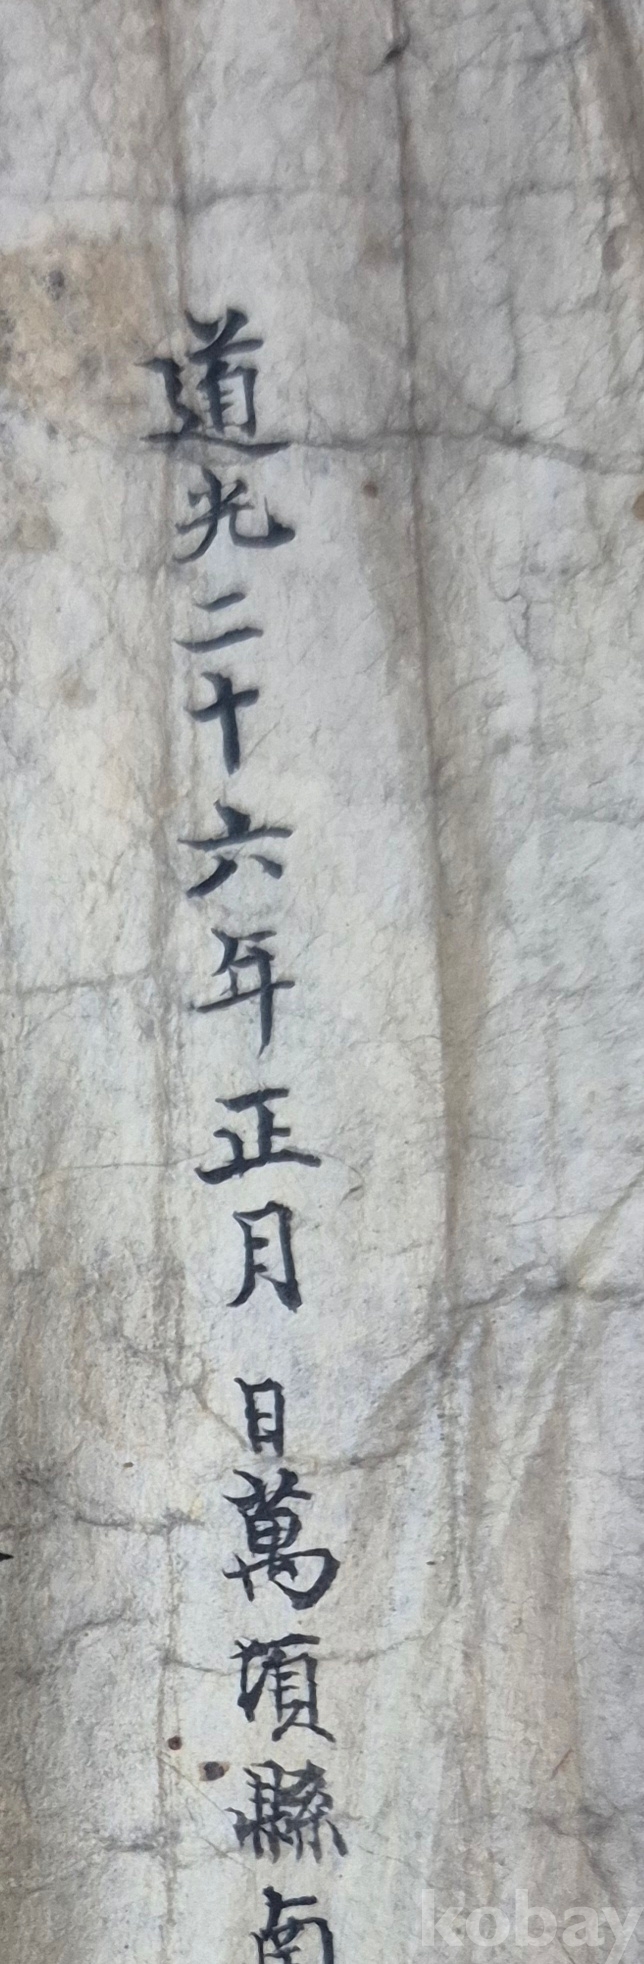 道光二十六年正月 日萬頃縣南
kobay